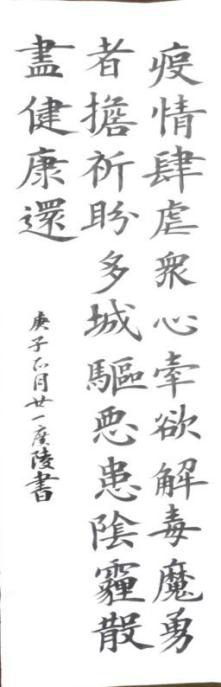 疫情肆虐衆心牽欲解毒魔勇
者擔祈盼多城驅惡患陰霾散
盡健康還
庚子正月廿一廣陵書